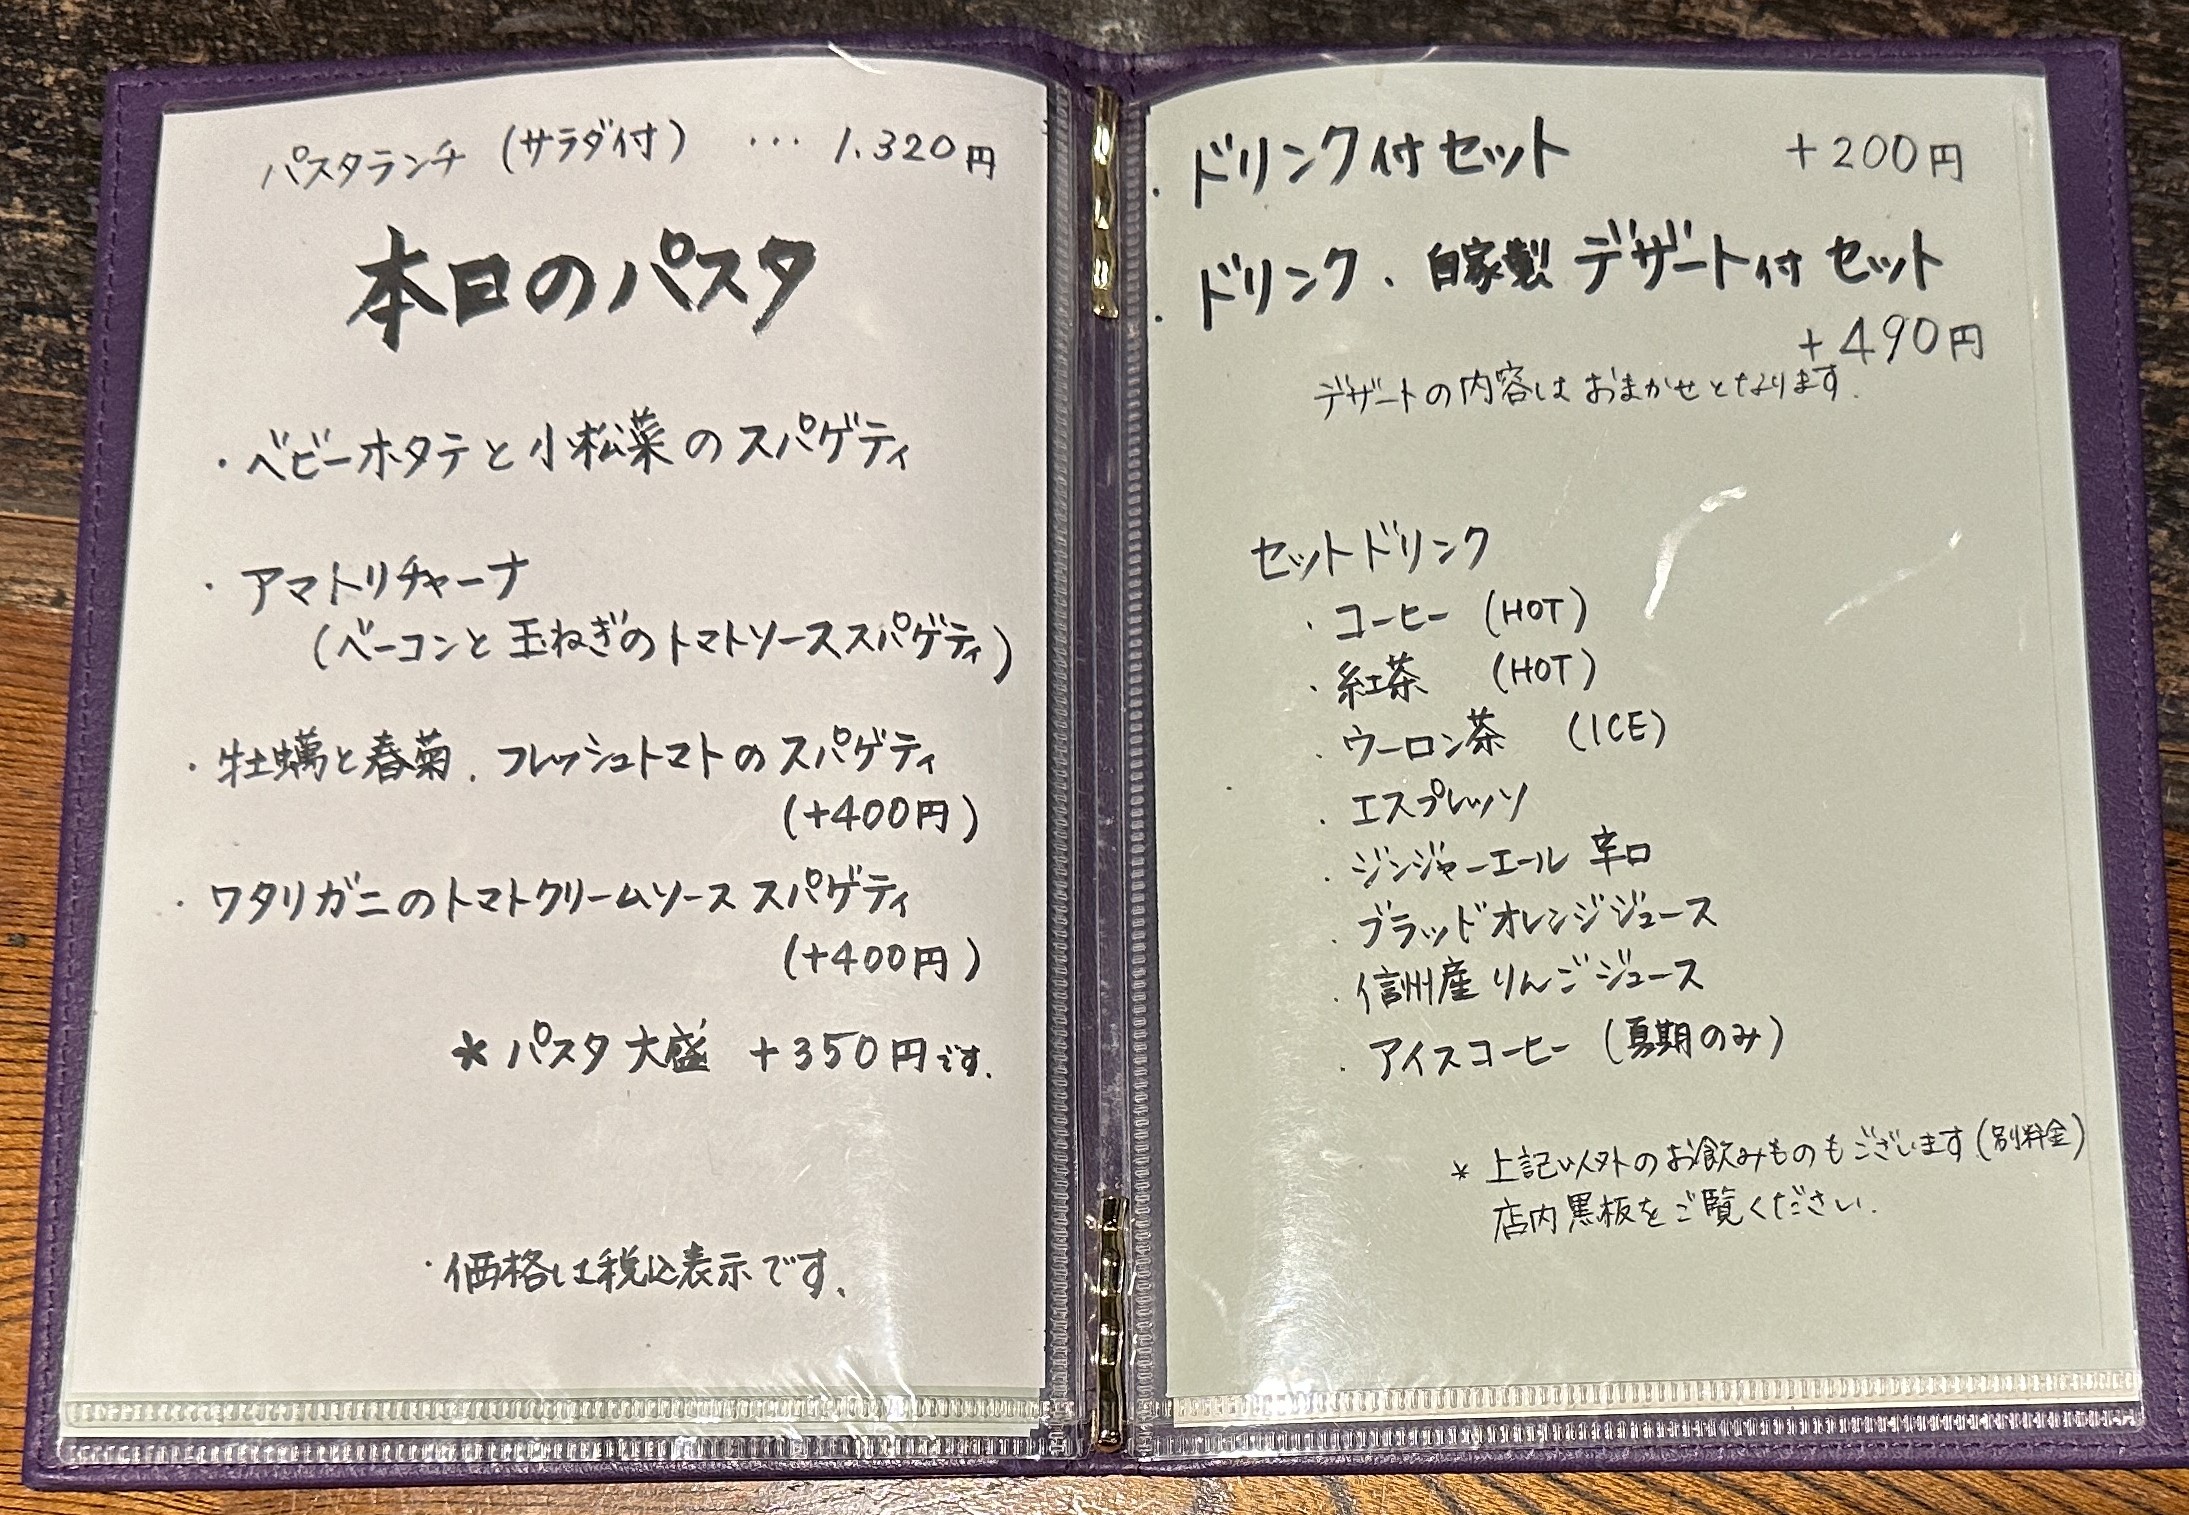 パスタランチ (サラダ付) ... 1.320円
本日のパスタ
・ベビーホタテと小松菜のスパゲティ
・アマトリチャーナ
(ベーコンと玉ねぎのトマトソーススパゲティ)
・牡蠣と春菊、フレッシュトマトのスパゲティ
(+400円)
・ワタリガニのトマトクリームソーススパゲティ
(+400円)
＊パスタ大盛 +350円です.
・価格は税込表示です.
・ドリンク付セット +200円
・ドリンク、自家製デザート付セット
+490円
デザートの内容はおまかせとなります.
セットドリンク
・コーヒー (HOT)
・紅茶 (HOT)
・ウーロン茶 (ICE)
・エスプレッソ
・ジンジャーエール 辛口
・ブラッドオレンジジュース
・信州産りんごジュース
・アイスコーヒー (夏期のみ)
＊上記以外のお飲みものもございます(別料金)
店内黒板をご覧ください.